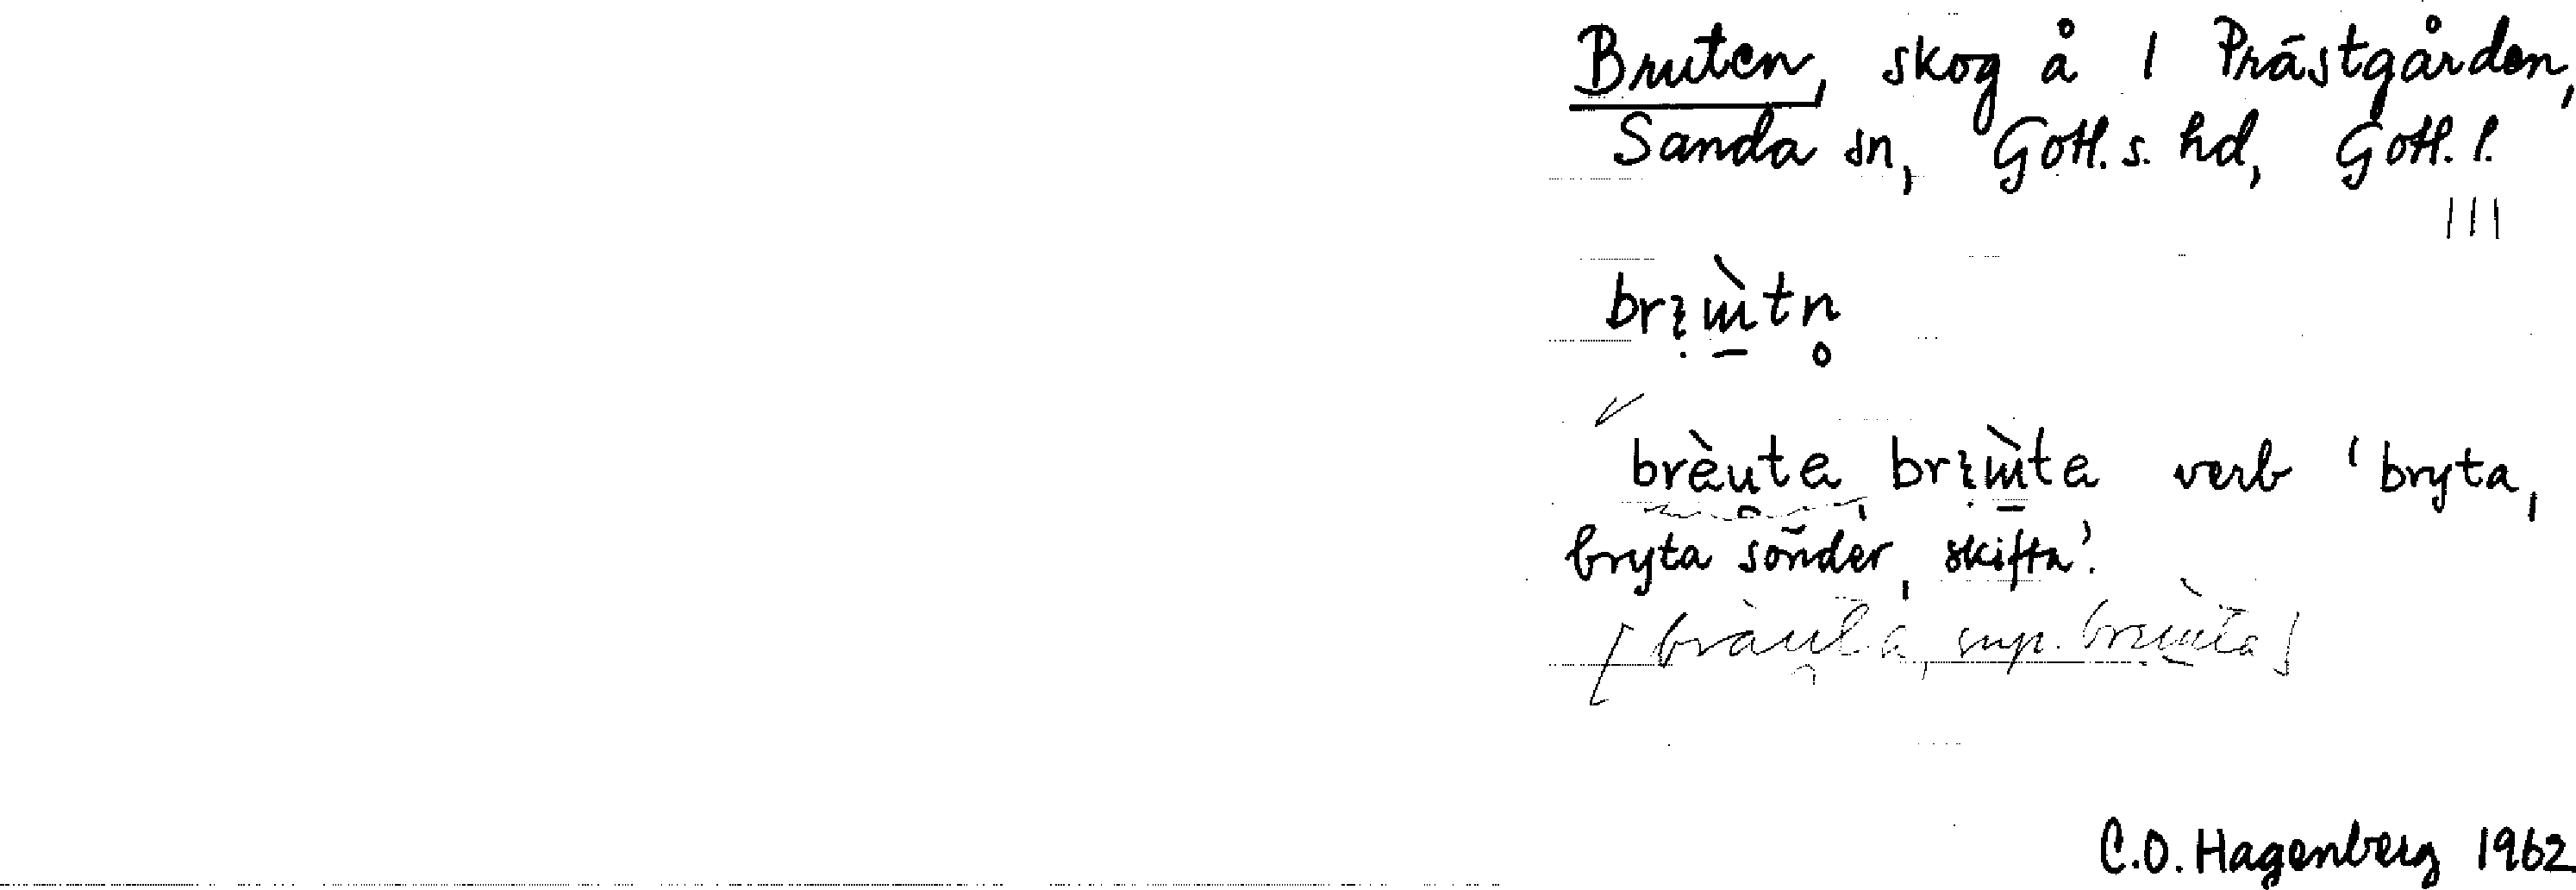 Bruten, skog å 1 Prästgården,
Sanda sn, Gotl. s. hd, Gotl. l.
III
brı̣ɯ̲̀tn̥
brèu̯ta, brı̣ɯ̲̀ta verb 'bryta,
bryta sönder, skifta'.
[bràu̯ta, sup. brı̣ɯ̲̀ta]
C.O. Hagenberg 1962